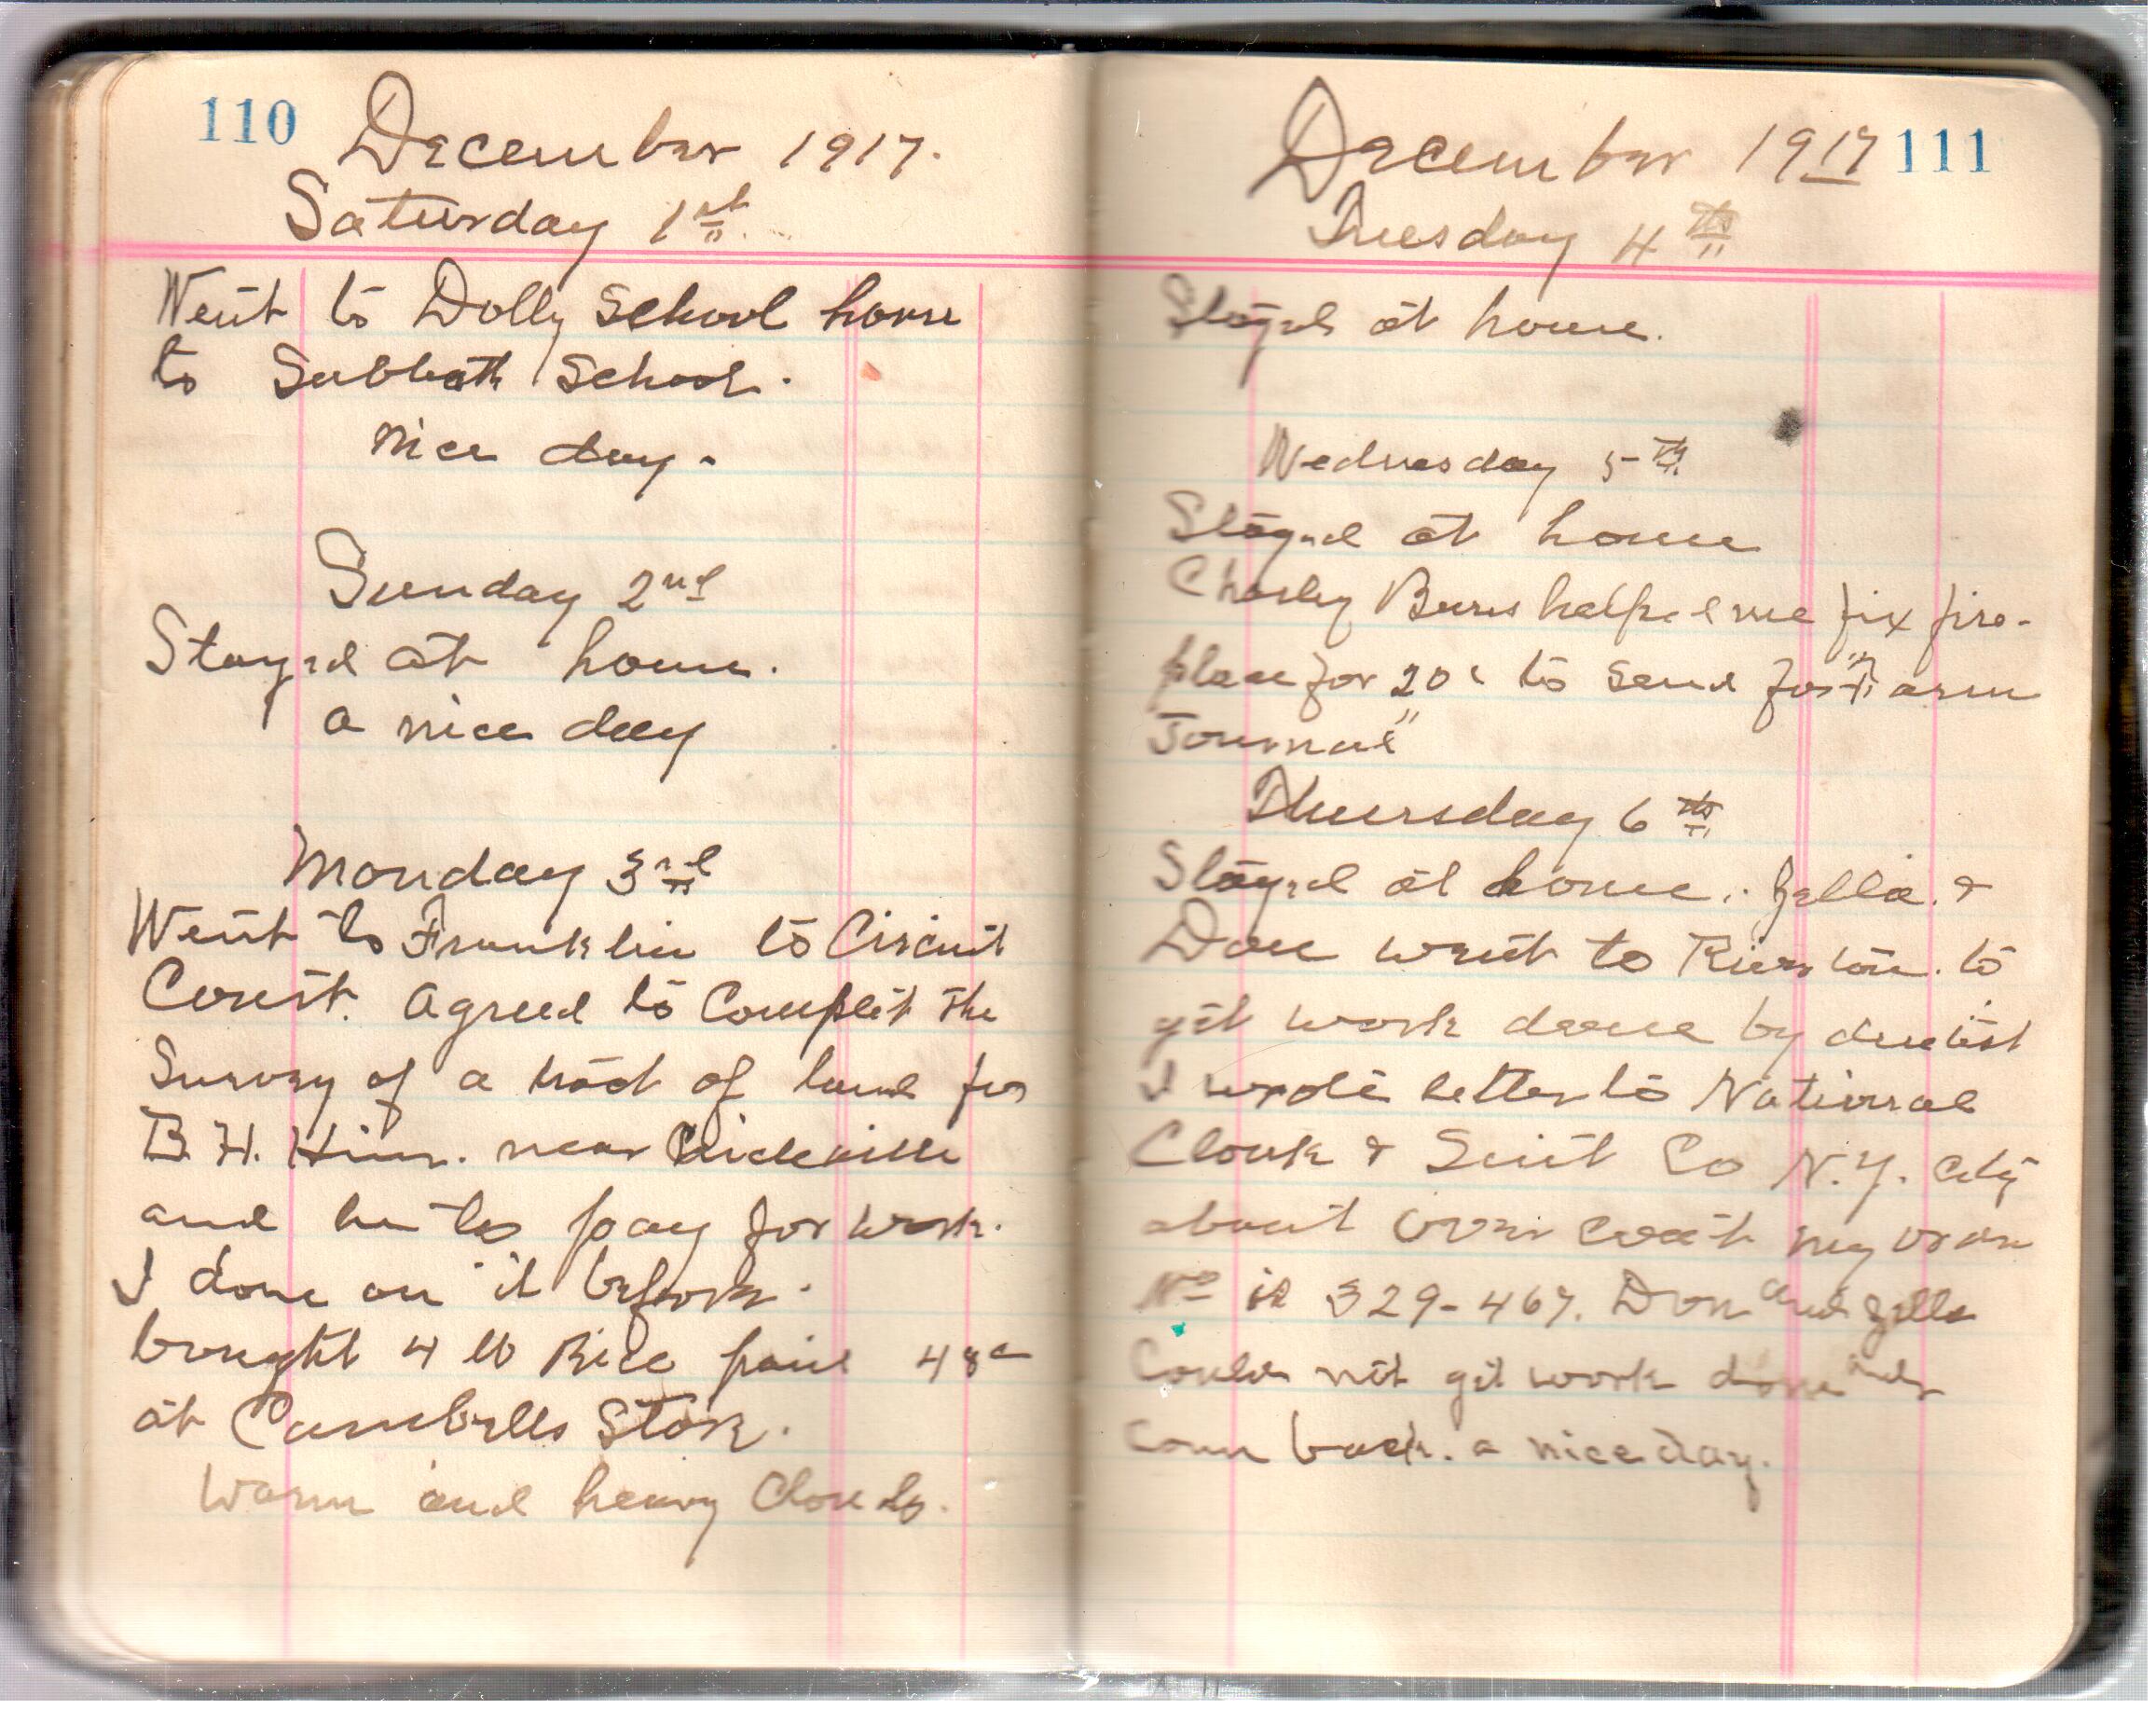 110
December 1917.
Saturday 1st
Went to Dolly School house
to Sabbath School.
nice day.
Sunday 2nd
Stayed at home.
a nice day
Monday 3rd
Went to Franklin to Circuit
Court. agreed to Complet the
Survey of a tract of land for
B. H. Hiner. near
and he to pay for work.
I done on it before.
bought 4 lb Rice paid 48c
at Cambells Store.
Warm and heavy Clouds.
December 1917 111
Tuesday 4th
Stayed at home.
Wednesday 5th
Stayed at home
Charley Burns helped me fix fire-
place for 20c to send for "Farm
Journal"
Thursday 6th
Stayed at home. Zella. &
Don went to Riverton. to
git work done by dentist
I wrote letter to National
Cloak & Suit Co N.Y. City
about over coat my order
No is 329-467. Don and Zella
Could not git work done and
come back. a nice day.